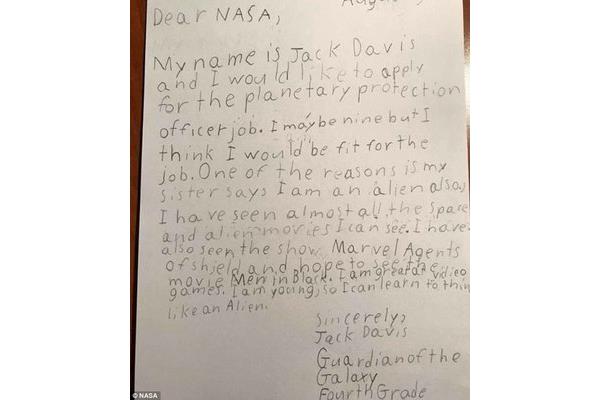 Dear NASA,
My name is Jack Davis
and I would like to apply
for the planetary protection
officer job. I may be nine but I
think I would be fit for the
job. One of the reasons is my
sister says I am an alien also,
I have seen almost all the space
and alien movies I can see. I have
also seen the show Marvel Agents
of Shield and hope to see the
movie Men in Black. I am great at vidieo
games. I am young, so I can learn to think
like an Alien.
Sincerely,
Jack Davis
Guardian of the
Galaxy
Fourth Grade
© NASA